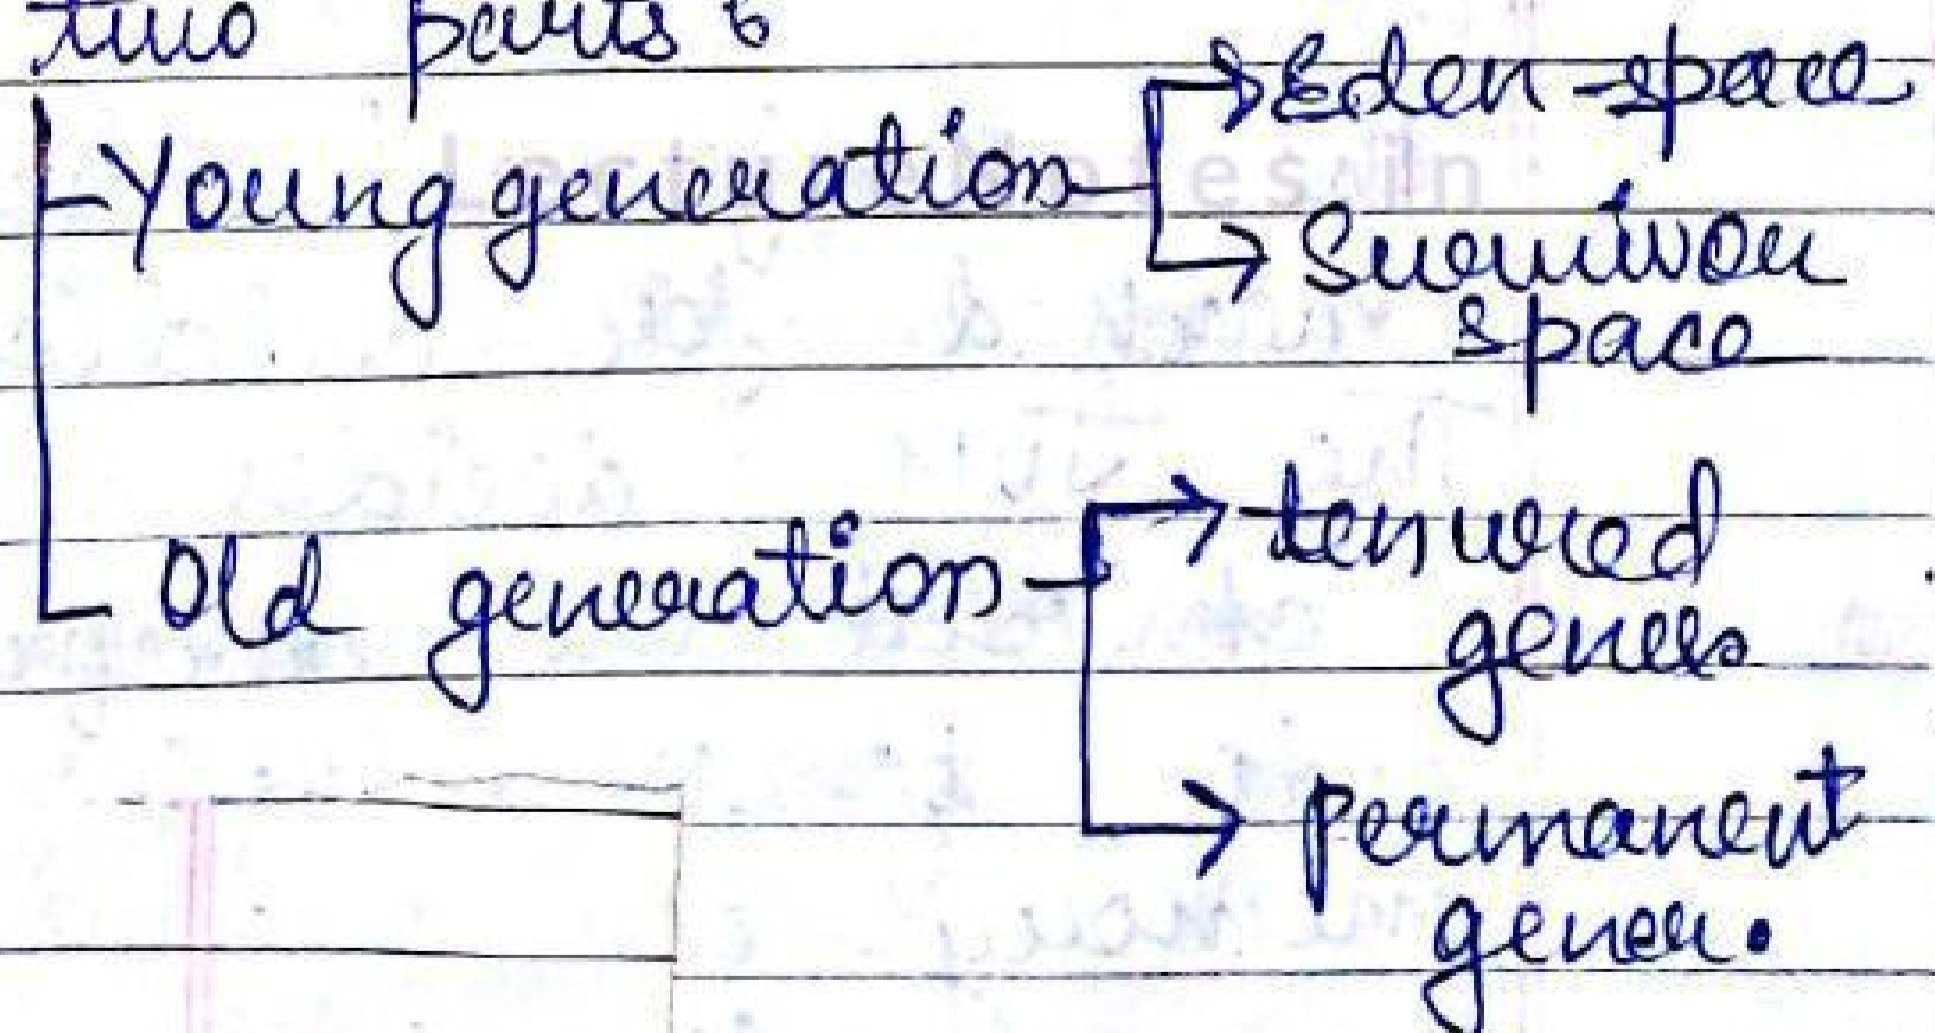 two parts :
Young generation → Eden space
→ Survivor
space
Old generation → tenured
gener.
→ permanent
gener.